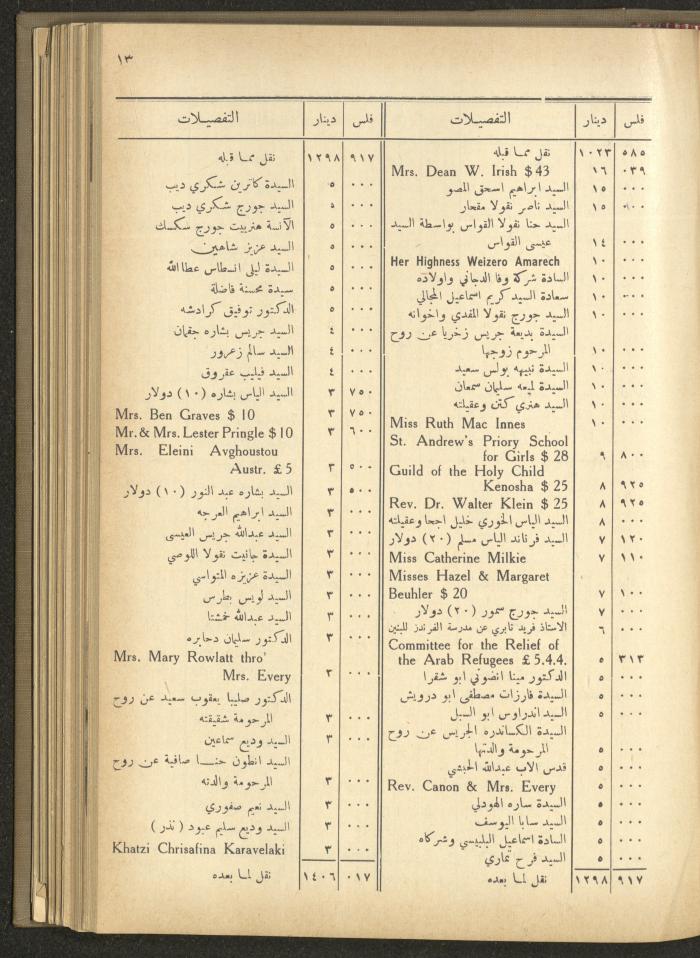 ١٣
فلس دينار التفصيلات
٥٨٥ ١٠٢٣ نقل مما قبله
٠٣٩ ١٦ Mrs. Dean W. Irish $ 43
٠٠٠ ١٥ السيد ابراهيم اسحق المصو
٠٠٠ ١٥ السيد ناصر نقولا مقحار
السيد حنا نقولا القواس بواسطة السيد
٠٠٠ ١٤ عيسى القواس
٠٠٠ ١٠ Her Highness Weizero Amarech
٠٠٠ ١٠ السادة شركة وفا الدجاني واولاده
٠٠٠ ١٠ سعادة السيد كريم اسماعيل المجالي
٠٠٠ ١٠ السيد جورج نقولا المفدي واخوانه
السيدة بديعة جريس زخريا عن روح
٠٠٠ ١٠ المرحوم زوجها
٠٠٠ ١٠ السيدة نبيهه بولس سعيد
٠٠٠ ١٠ السيدة لميعه سليمان سمعان
٠٠٠ ١٠ السيد هنري كتن وعقيلته
٠٠٠ ١٠ Miss Ruth Mac Innes
St. Andrew's Priory School
٨٠٠ ٩ for Girls $ 28
Guild of the Holy Child
٩٢٥ ٨ Kenosha $ 25
٩٢٥ ٨ Rev. Dr. Walter Klein $ 25
٠٠٠ ٨ السيد الياس الخوري خليل اجحا وعقيلته
١٢٠ ٧ السيد فرناند الياس مسلم (٢٠) دولار
١١٠ ٧ Miss Catherine Milkie
Misses Hazel & Margaret
١٠٠ ٧ Beuhler $ 20
٠٠٠ ٧ السيد جورج سمور (٢٠) دولار
٠٠٠ ٦ الاستاذ فريد تابري عن مدرسة الفرندز للبنين
Committee for the Relief of
٣١٣ ٥ the Arab Refugees £ 5.4.4.
٠٠٠ ٥ الدكتور مينا انضوني ابو شقرا
٠٠٠ ٥ السيدة فارزات مصطفى ابو درويش
٠٠٠ ٥ السيد اندراوس ابو السبل
السيدة الكساندره الجريس عن روح
٠٠٠ ٥ المرحومة والدتها
٠٠٠ ٥ قدس الاب عبدالله الحبشي
٠٠٠ ٥ Rev. Canon & Mrs. Every
٠٠٠ ٥ السيدة ساره الهودلي
٠٠٠ ٥ السيد سابا اليوسف
٠٠٠ ٥ السادة اسماعيل البلبيسي وشركاه
٠٠٠ ٥ السيد فرح تماري
٩١٧ ١٢٩٨ نقل لما بعده
فلس دينار التفصيلات
٩١٧ ١٢٩٨ نقل مما قبله
٠٠٠ ٥ السيدة كاترين شكري ديب
٠٠٠ ٥ السيد جورج شكري ديب
٠٠٠ ٥ الآنسة هنربيت جورج سكسك
٠٠٠ ٥ السيد عزيز شاهين
٠٠٠ ٥ السيدة ليلى انسطاس عطاالله
٠٠٠ ٥ سيدة محسنة فاضلة
٠٠٠ ٥ الدكتور توفيق كرادشه
٠٠٠ ٤ السيد جريس بشاره جقمان
٠٠٠ ٤ السيد سالم زعرور
٠٠٠ ٤ السيد فيليب عقروق
٧٥٠ ٣ السيد الياس بشاره (١٠) دولار
٧٥٠ ٣ Mrs. Ben Graves $ 10
٦٠٠ ٣ Mr. & Mrs. Lester Pringle $ 10
Mrs. Eleini Avghoustou
٥٠٠ ٣ Austr. £ 5
٥٠٠ ٣ السيد بشاره عبد النور (١٠) دولار
٠٠٠ ٣ السيد ابراهيم العرجه
٠٠٠ ٣ السيد عبدالله جريس العيسى
٠٠٠ ٣ السيدة جانيت نقولا اللوصي
٠٠٠ ٣ السيدة عزيزه المتواسي
٠٠٠ ٣ السيد لويس بطرس
٠٠٠ ٣ السيد عبدالله خمشتا
٠٠٠ ٣ الدكتور سليمان دحابره
Mrs. Mary Rowlatt thro'
٠٠٠ ٣ Mrs. Every
الدكتور صليبا يعقوب سعيد عن روح
٠٠٠ ٣ المرحومة شقيقته
٠٠٠ ٣ السيد وديع سماعين
السيد انطون حنا صافية عن روح
٠٠٠ ٣ المرحومة والدته
٠٠٠ ٣ السيد نعيم صفوري
٠٠٠ ٣ السيد وديع سليم عبود (نذر)
٠٠٠ ٣ Khatzi Chrisafina Karavelaki
٠١٧ ١٤٠٦ نقل لما بعده